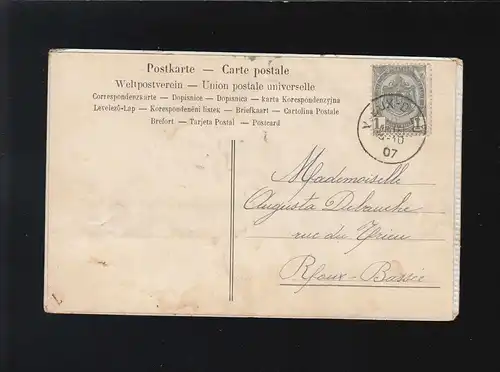 Postkarte — Carte postale
Weltpostverein — Union postale universelle
Correspondenzkarte — Dopisnice — Dopisnica — karta Korespondenzyjna
Levelező-Lap — Korespondenční lístek — Briefkaart — Cartolina Postale
Brefort — Tarjeta Postal — Postcard
07
Mademoiselle
Augusta Debauche
rue du
Roux-Bassie